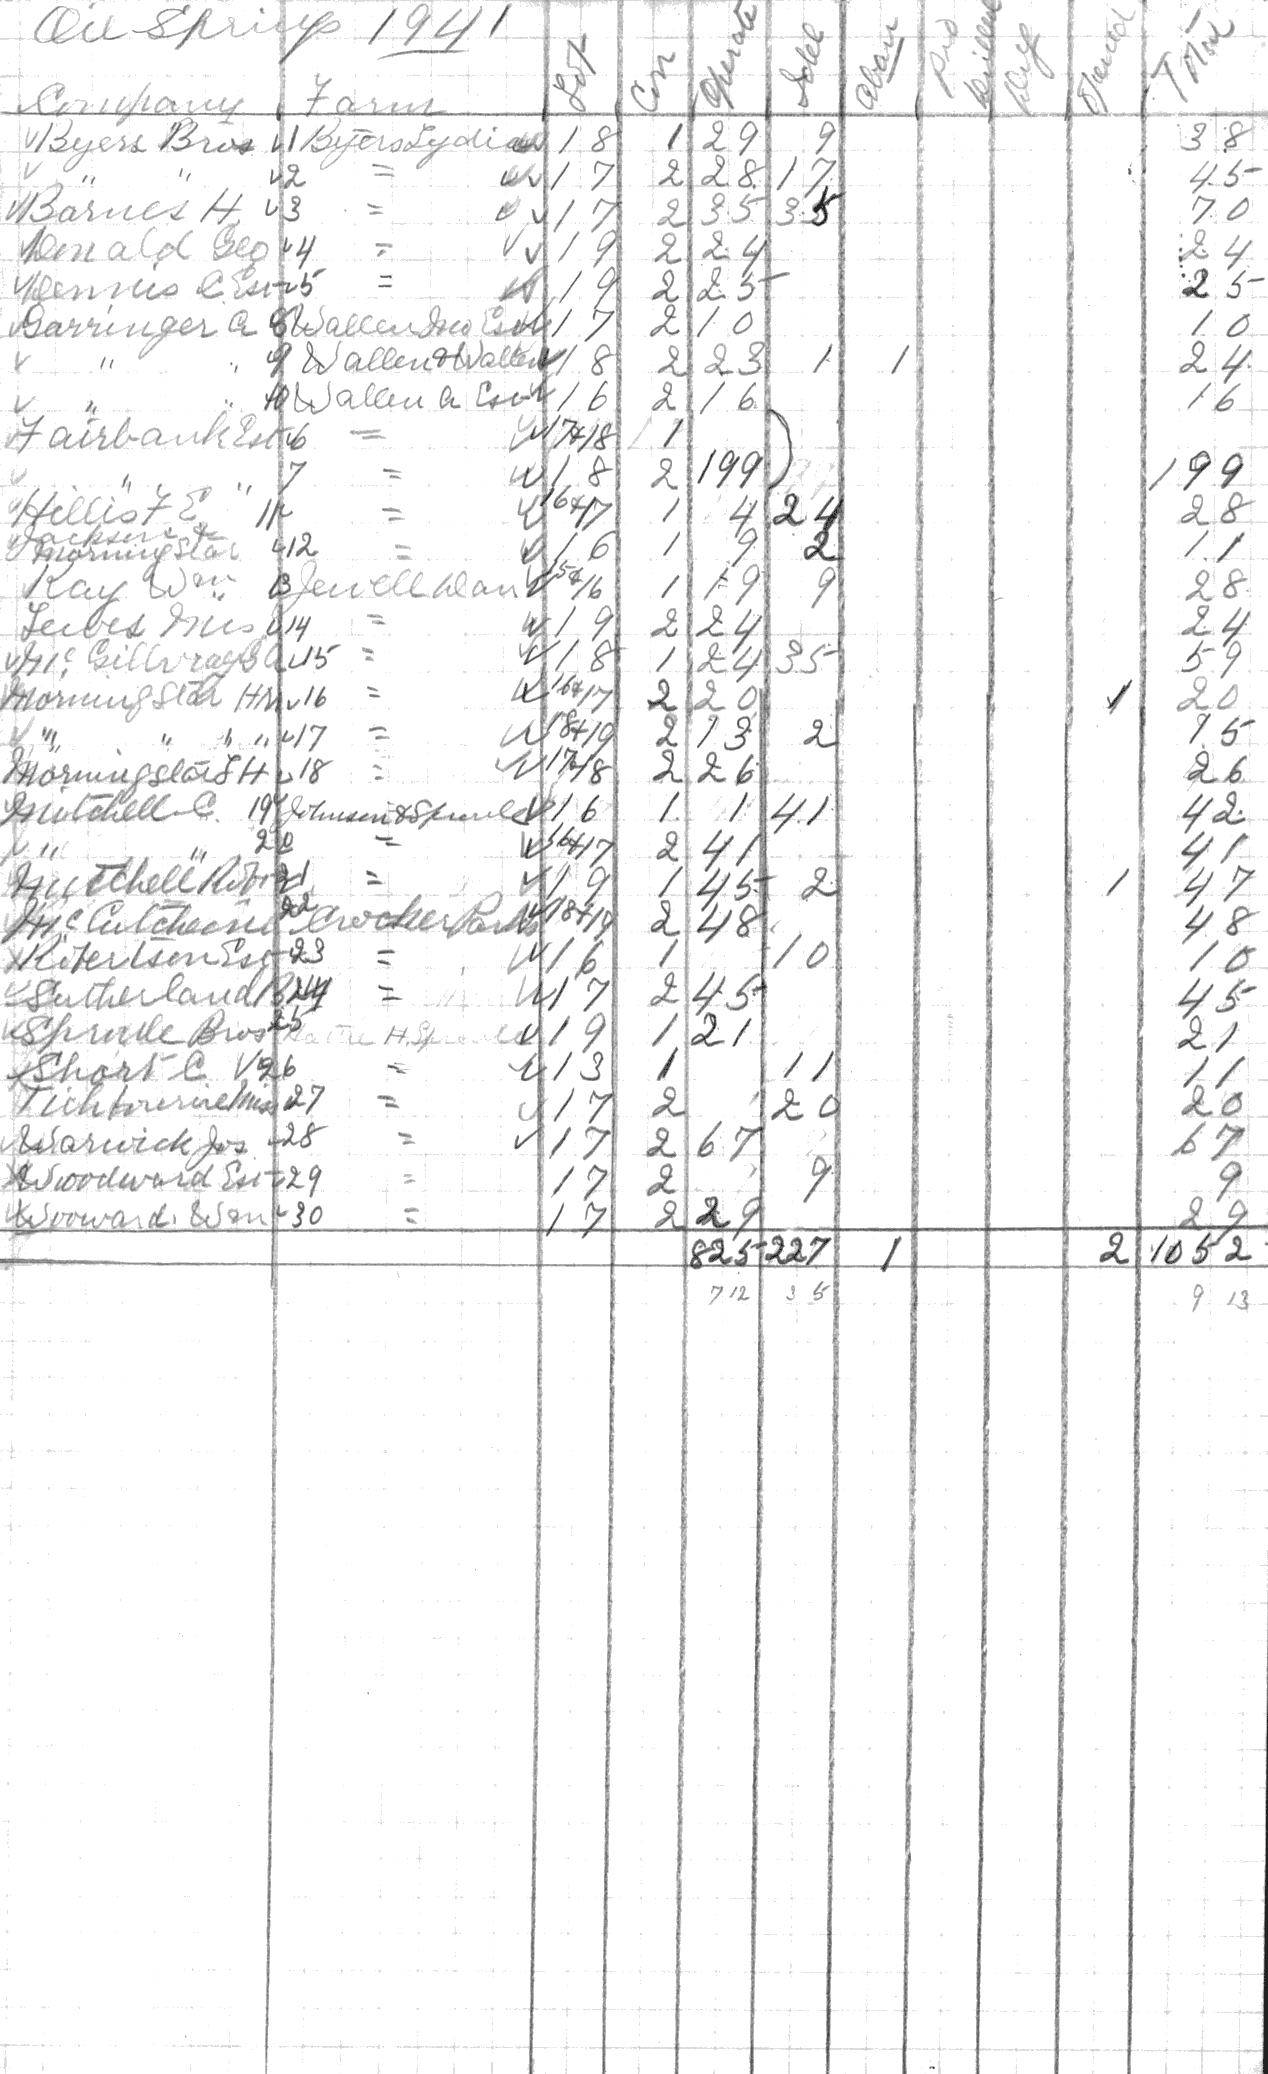 Oil Springs 1941
Company Farm Lot Con Operate Idle Aban Pro Drilled Dry Total
Byers Bros 1 Byers Lydia 18 1 29 9 38
" " 2 = 17 2 28 17 45
Barnes H. 3 = 17 2 35 35 70
Donald Geo 4 = 19 2 24 24
Dennis C Est 5 = 19 2 25 25
Barringer A 8 Wallen Jno Est 17 2 10 10
" " 9 Wallen & Wallen 18 2 23 1 1 24
" " 10 Wallen A Est 16 2 16 16
Fairbank Est 6 = 17+18 1
" " 7 = 18 2 199 199
Hillis F E 11 = 16+17 1 4 24 28
Jackson &
Morningstar 12 = 16 1 9 2 11
Kay Wm 13 Jewell Dan 15+16 1 19 9 28
14 = 19 2 24 24
McGillvray 15 = 18 1 24 35 59
Morningstar HM 16 = 16+17 2 20 1 20
" " " " 17 = 18+19 2 13 2 15
Morningstar S H 18 = 17+18 2 26 26
Mitchell C. 19 Johnson & Sproule 16 1 1 41 42
" " 20 = 16+17 2 41 41
Mitchell Robt 21 = 19 1 45 2 1 47
McCutcheon 22 Crocker Parks 18+19 2 48 48
Robertson Est 23 = 16 1 10 10
Sutherland 24 = 17 2 45 45
Sproule Bros 25 H. Sproule 19 1 21 21
Short C 26 = 13 1 11 11
Tichbourne Miss 27 = 17 2 20 20
Warwick Jos 28 = 17 2 67 67
Woodward Est 29 = 17 2 9 9
Wooward Wm 30 = 17 2 29 29
825 227 1 2 1052
7 12 3 5 9 13